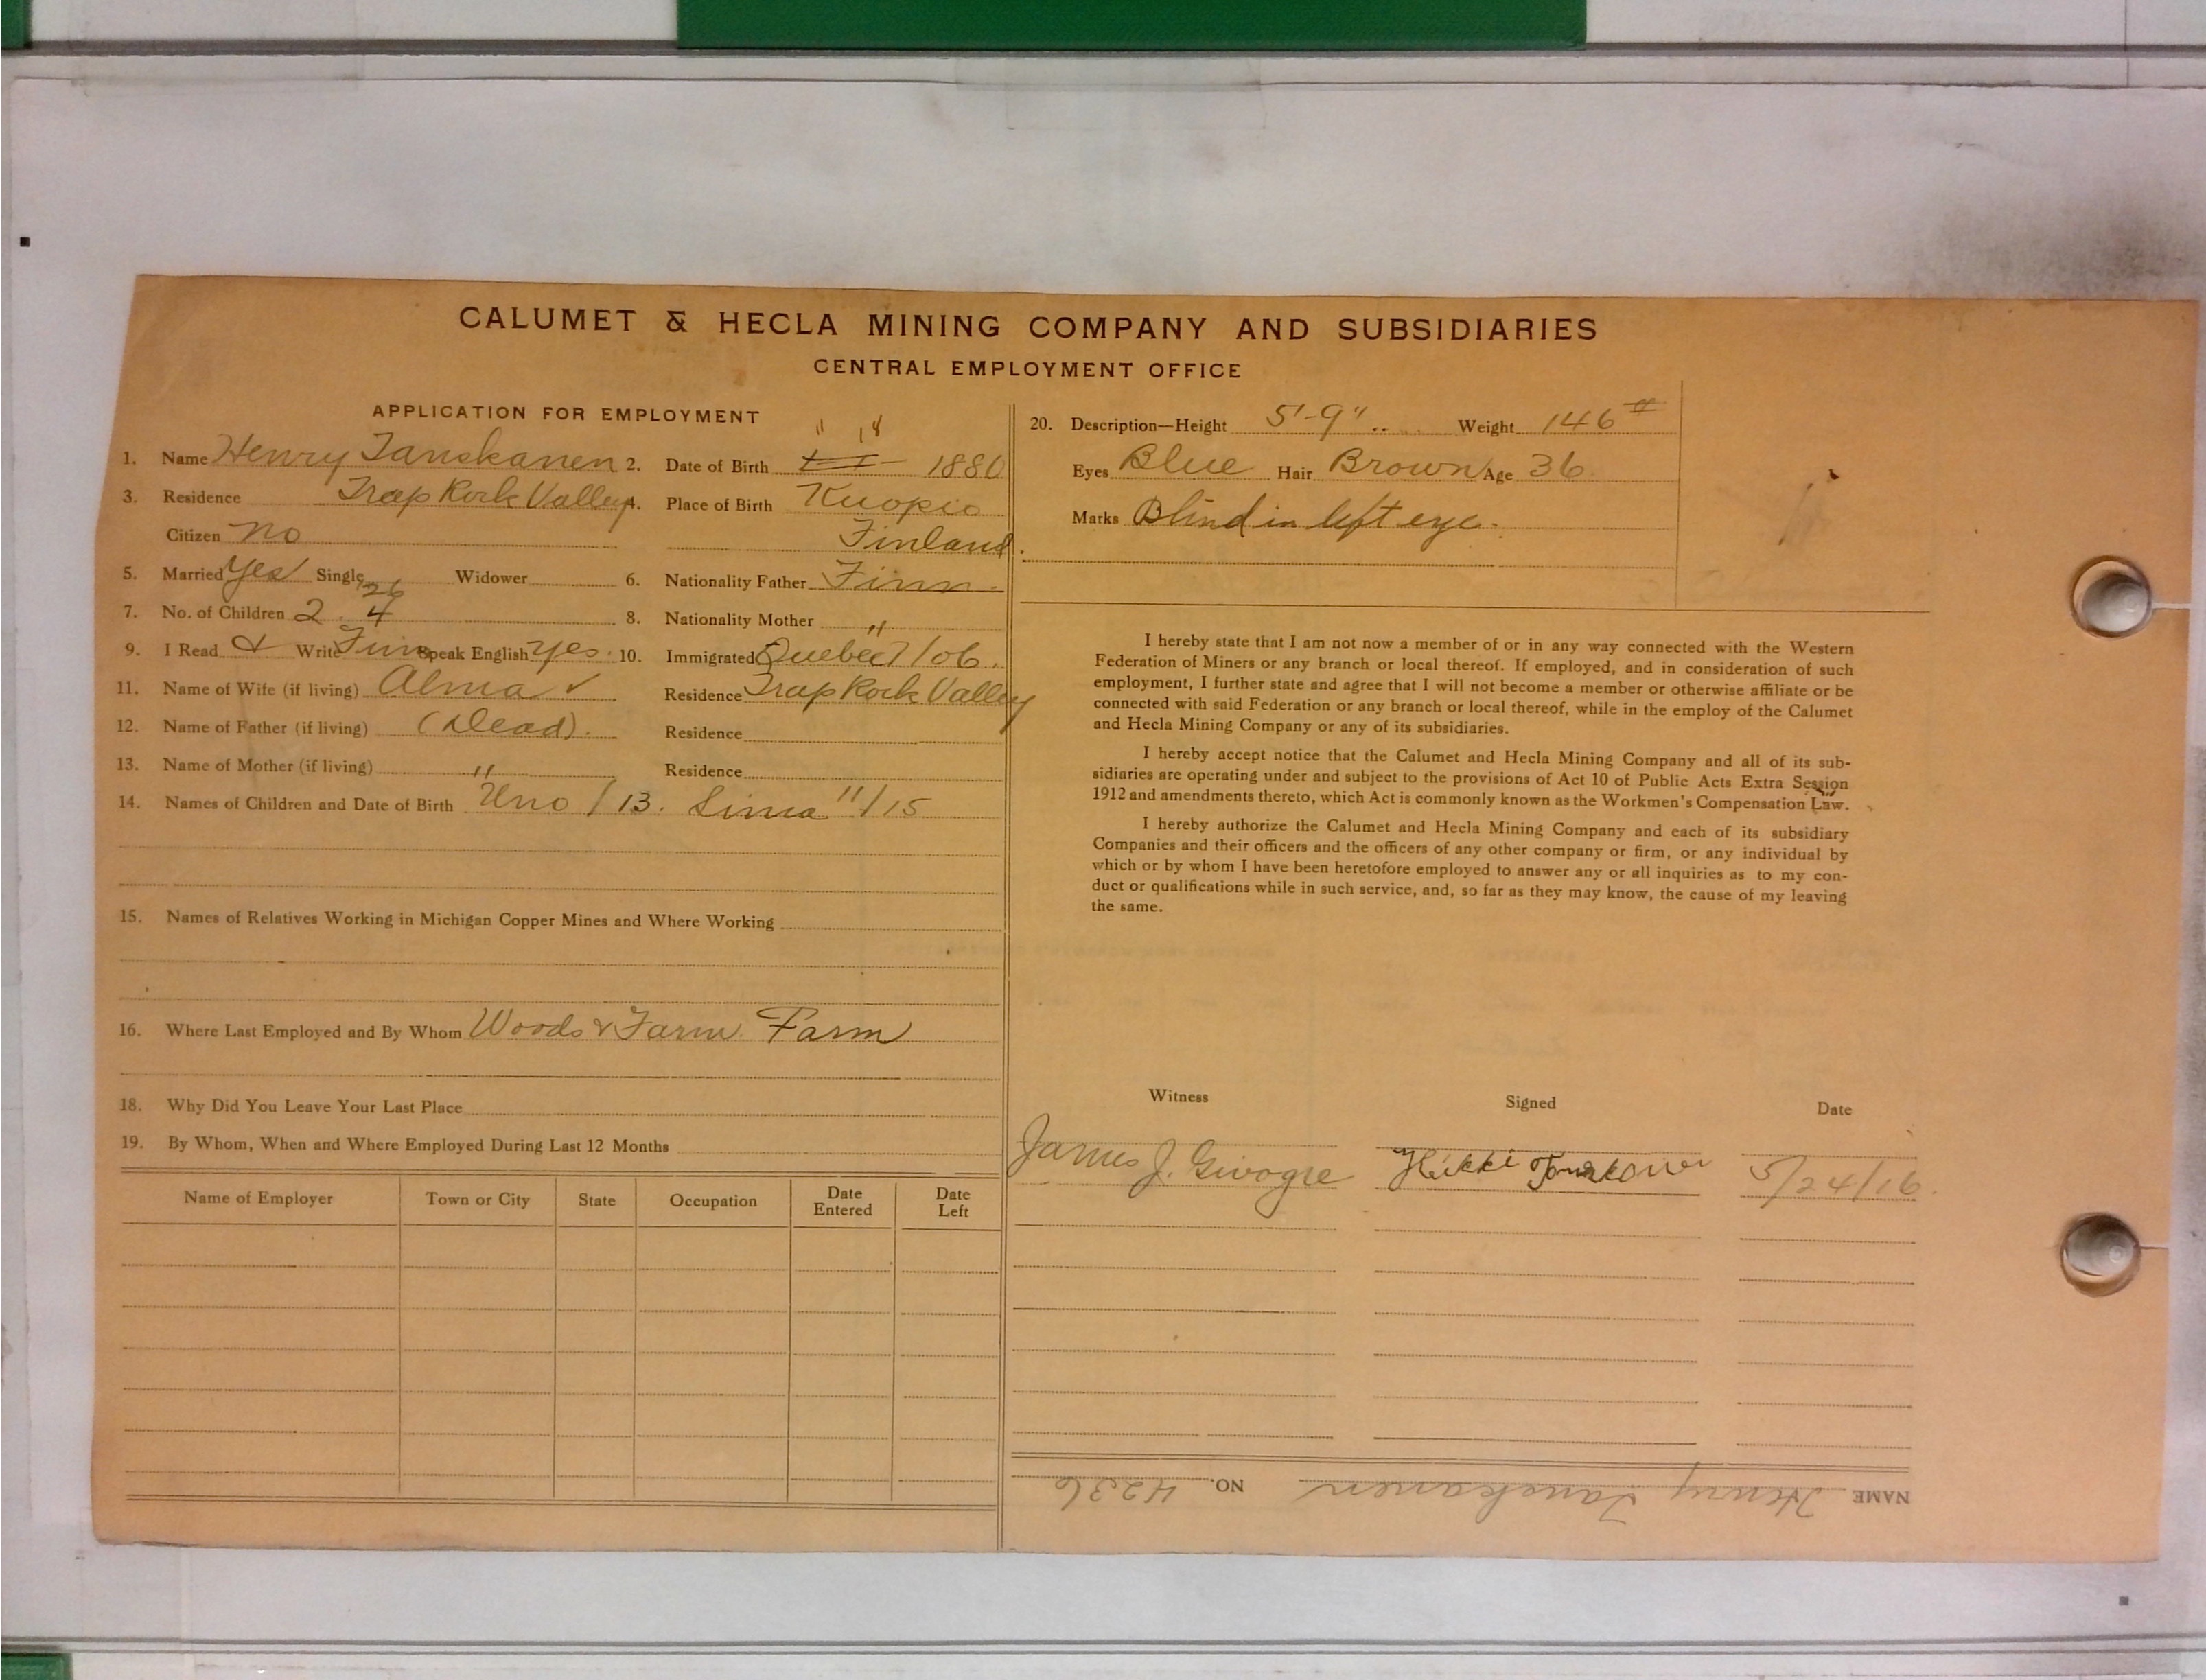 CALUMET & HECLA MINING COMPANY AND SUBSIDIARIES
CENTRAL EMPLOYMENT OFFICE
APPLICATION FOR EMPLOYMENT
" 18
1. Name Henry Tanskanen 2. Date of Birth 1880
3. Residence Trap Rock Valley 4. Place of Birth Kuopio
Citizen no Finland
5. Married Yes Single Widower 6. Nationality Father Finn
26
7. No. of Children 2 4 8. Nationality Mother "
9. I Read & Write Finn Speak English yes. 10. Immigrated Quebec / 06.
11. Name of Wife (if living) Alma ✓ Residence Trap Rock Valley
12. Name of Father (if living) (Dead). Residence
13. Name of Mother (if living) " Residence
14. Names of Children and Date of Birth Uno / 13. "/15
15. Names of Relatives Working in Michigan Copper Mines and Where Working
16. Where Last Employed and By Whom Woods & Farm. Farm
18. Why Did You Leave Your Last Place
19. By Whom, When and Where Employed During Last 12 Months
Name of Employer Town or City State Occupation Date Entered Date Left
20. Description—Height 5'-9" Weight 146 #
Eyes Blue Hair Brown Age 36
Marks Blind in left eye.
I hereby state that I am not now a member of or in any way connected with the Western
Federation of Miners or any branch or local thereof. If employed, and in consideration of such
employment, I further state and agree that I will not become a member or otherwise affiliate or be
connected with said Federation or any branch or local thereof, while in the employ of the Calumet
and Hecla Mining Company or any of its subsidiaries.
I hereby accept notice that the Calumet and Hecla Mining Company and all of its sub-
sidiaries are operating under and subject to the provisions of Act 10 of Public Acts Extra Session
1912 and amendments thereto, which Act is commonly known as the Workmen's Compensation Law.
I hereby authorize the Calumet and Hecla Mining Company and each of its subsidiary
Companies and their officers and the officers of any other company or firm, or any individual by
which or by whom I have been heretofore employed to answer any or all inquiries as to my con-
duct or qualifications while in such service, and, so far as they may know, the cause of my leaving
the same.
Witness Signed Date
James J. Heikki 5/24/16.
NAME Henry Tanskanen NO. 4236